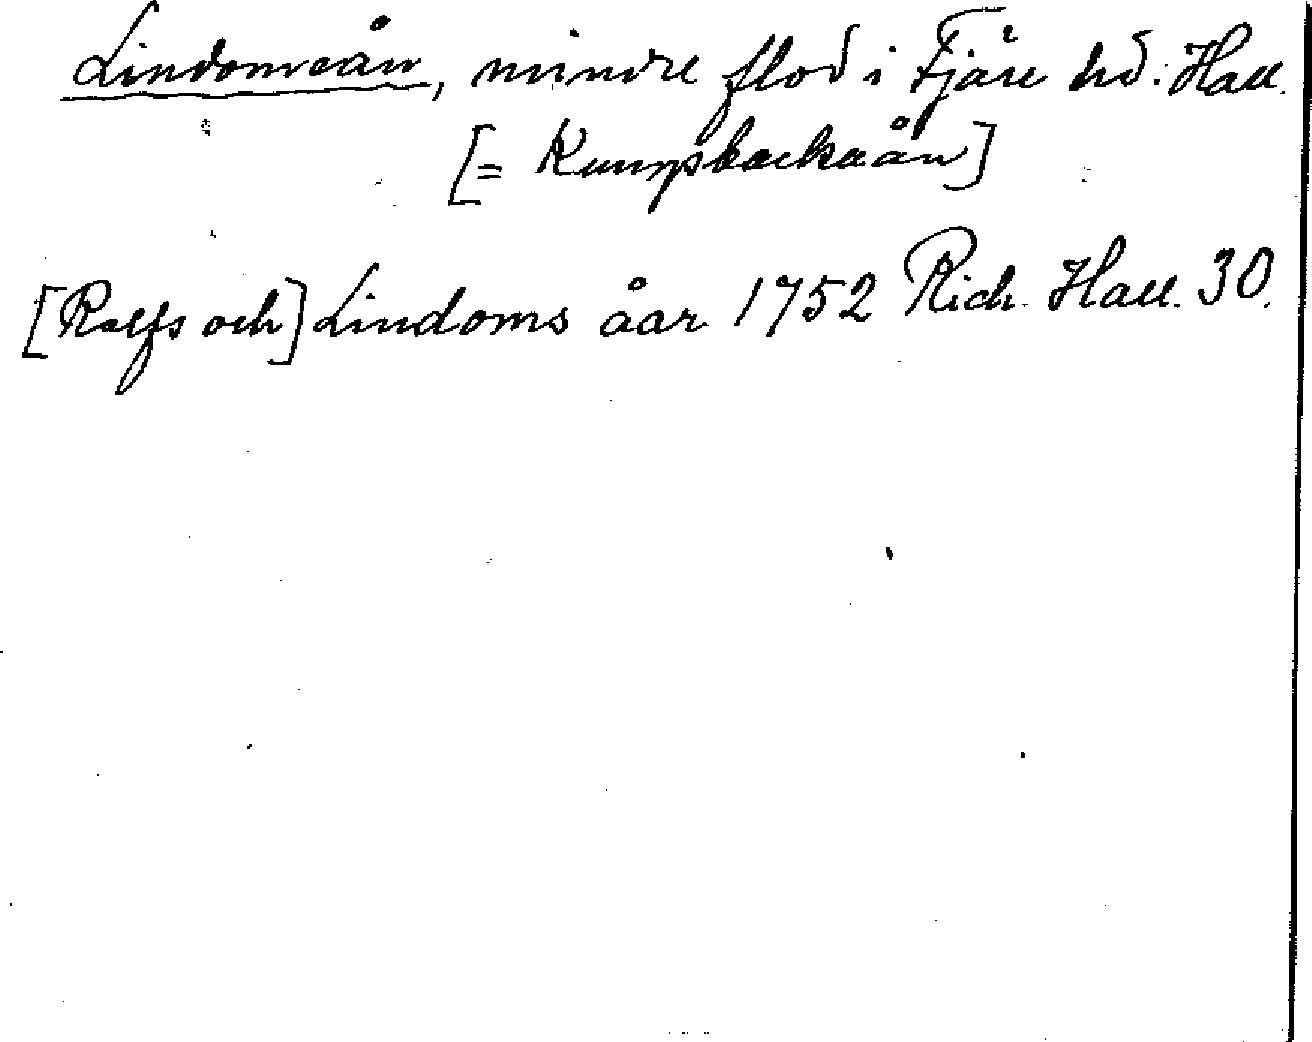 Lindomeån, mindre flod i Fjäre hd. Hall.
[= Kungsbackaån]
[Rolfs och] Lindoms åar 1752 Rich. Hall. 30.